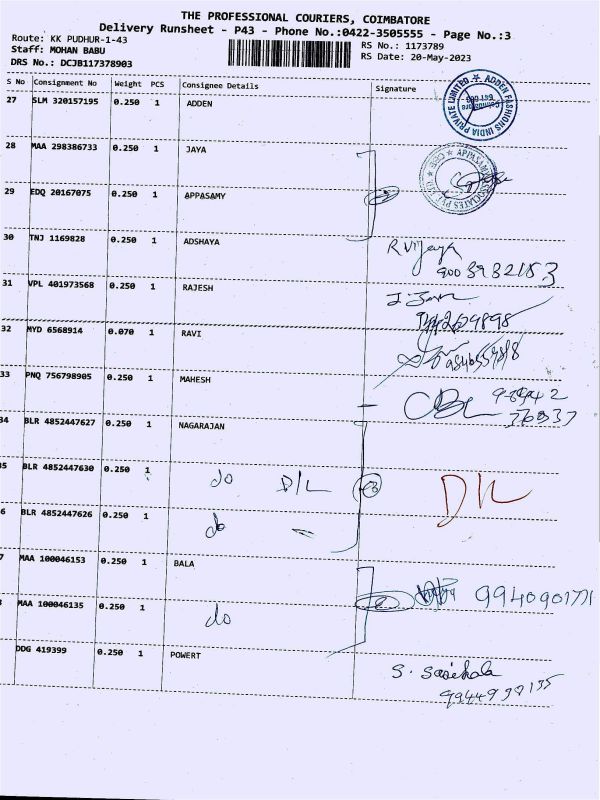 THE PROFESSIONAL COURIERS, COIMBATORE
Delivery Runsheet - P43 - Phone No.:0422-3505555 - Page No.:3
Route: KK PUDHUR-1-43
Staff: MOHAN BABU
DRS No.: DCJB117378903
RS No.: 1173789
RS Date: 20-May-2023
S No Consignment No Weight PCS Consignee Details Signature
27 SLM 320157195 0.250 1 ADDEN
ADDEN FASHIONS INDIA PRIVATE LIMITED
28 MAA 298386733 0.250 1 JAYA
29 EDQ 20167075 0.250 1 APPASAMY
30 TNJ 1169828 0.250 1 ADSHAYA
31 VPL 401973568 0.250 1 RAJESH
32 MYD 6568914 0.070 1 RAVI
33 PNQ 756798905 0.250 1 MAHESH
34 BLR 4852447627 0.250 1 NAGARAJAN
5 BLR 4852447630 0.250 1 do D/L D/L
6 BLR 4852447626 0.250 1 do
7 MAA 100046153 0.250 1 BALA
MAA 100046135 0.250 1 do
DDG 419399 0.250 1 POWERT
S. Sasikala